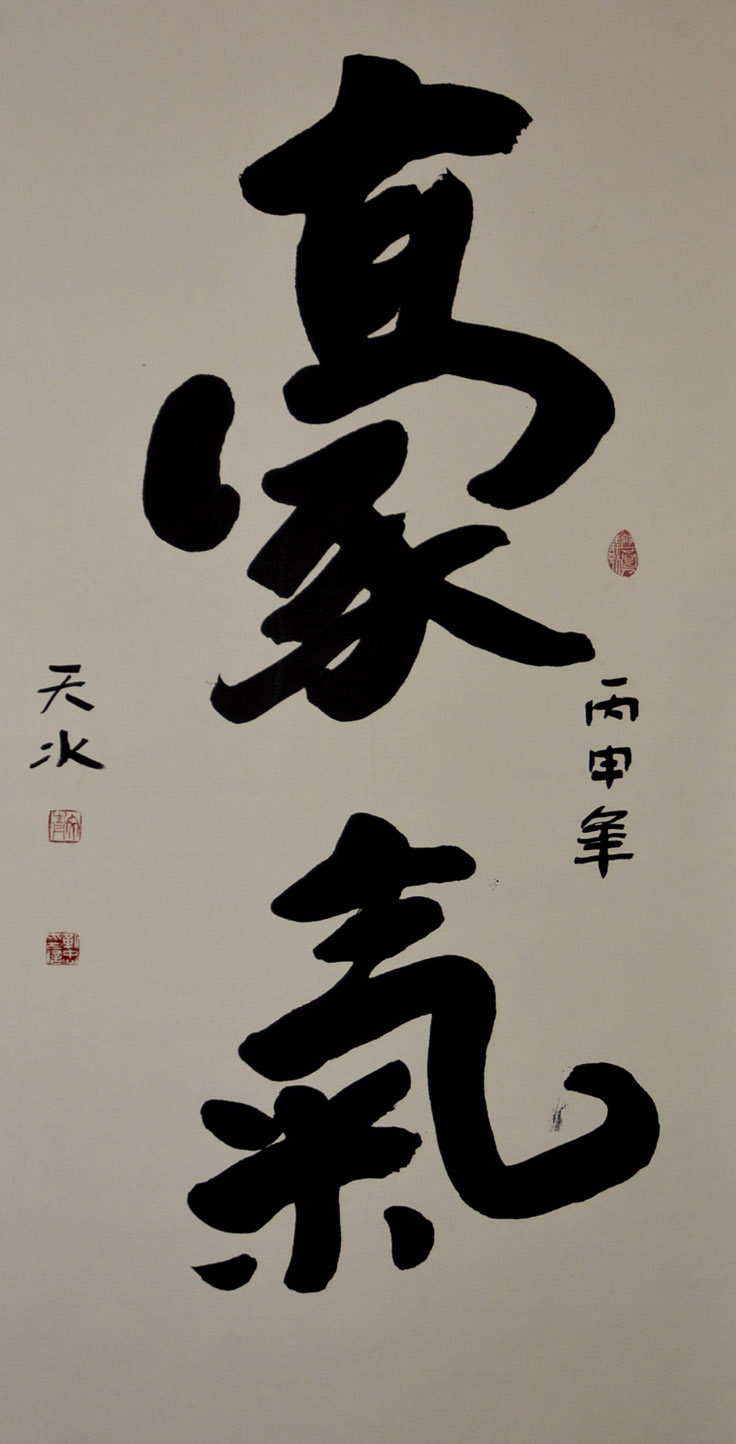 豪氣
丙申年
天水